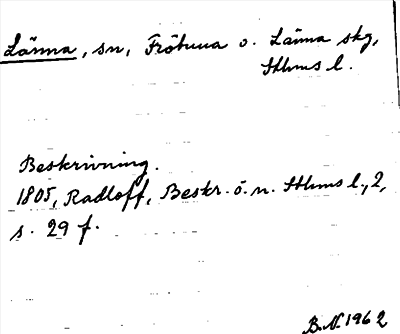 Länna, sn, Frötuna o. Länna skg,
Sthms l.
Beskrivning.
1805, Radloff, Beskr. ö. n. Sthms l., 2,
s. 29 f.
B.N. 1962